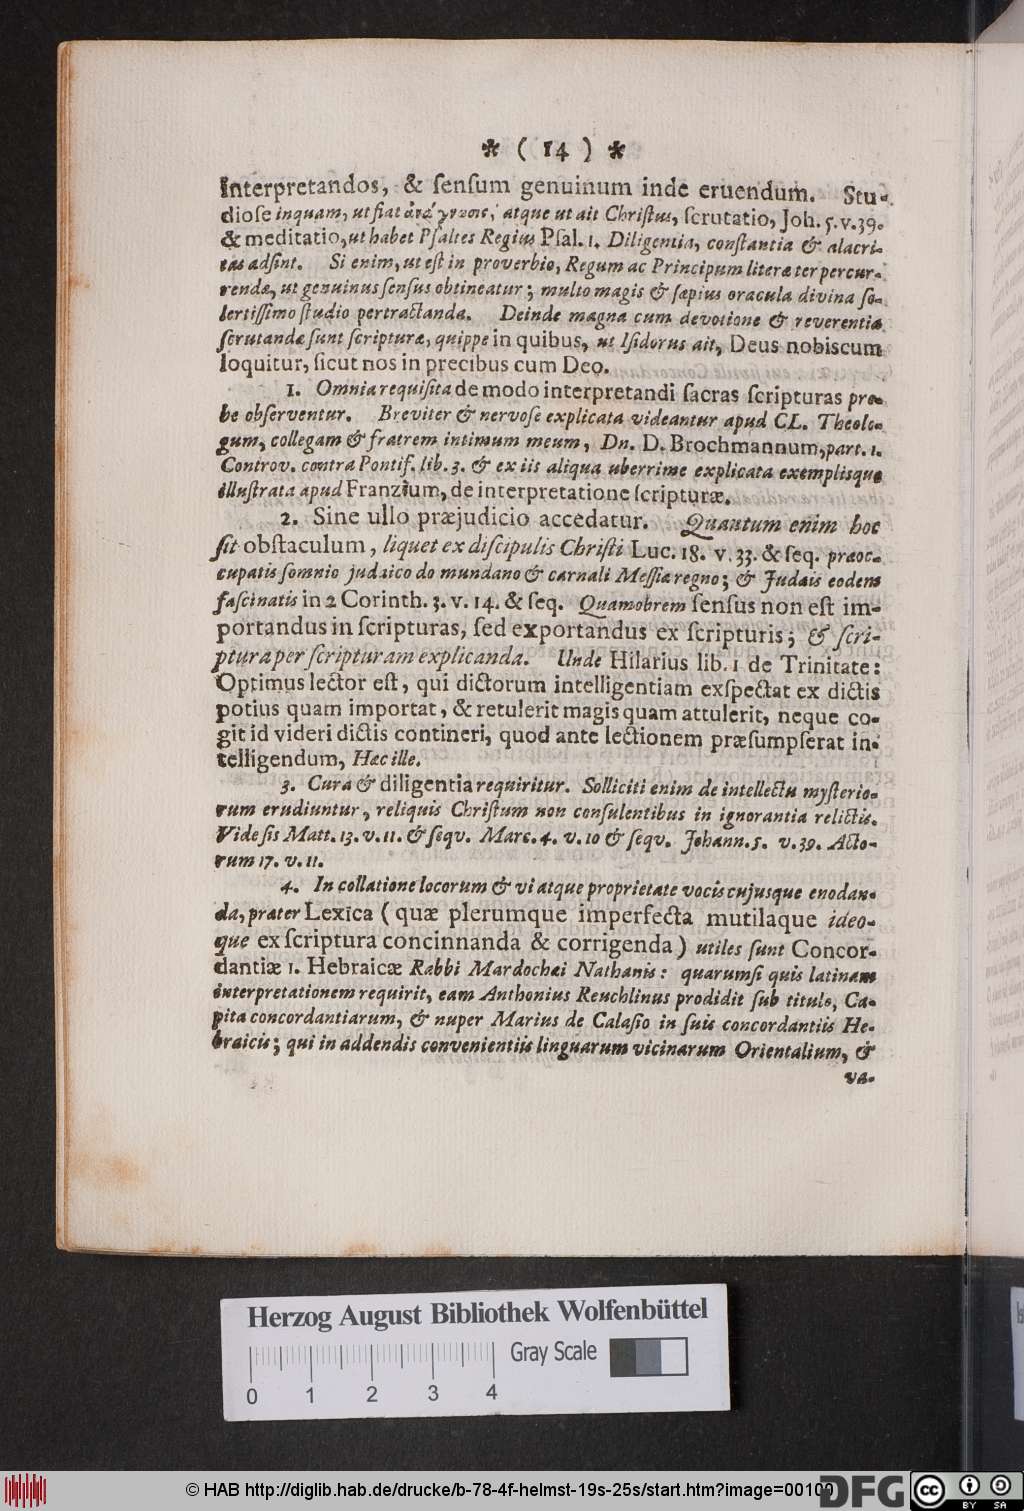 * ( 14 ) *
interpretandos, & ſenſum genuinum inde eruendum. Stu-
dioſe inquam, ut fiat ἀνάγνωσις, atque ut ait Chriſtus, ſcrutatio, Joh. 5. v. 39.
& meditatio, ut habet Pſaltes Regius Pſal. 1. Diligentia, conſtantia & alacri-
tas adſint. Si enim, ut eſt in proverbio, Regum ac Principum literæ ter percur-
rendæ, ut genuinus ſenſus obtineatur; multo magis & ſæpius oracula divina ſo-
lertiſſimo ſtudio pertractanda. Deinde magna cum devotione & reverentia
ſcrutandæ ſunt ſcripturæ, quippe in quibus, ut Iſidorus ait, Deus nobiscum
loquitur, ſicut nos in precibus cum Deo.
1. Omnia requiſita de modo interpretandi ſacras ſcripturas pro-
be obſerventur. Breviter & nervoſe explicata videantur apud CL. Theolo-
gum, collegam & fratrem intimum meum, Dn. D. Brochmannum, part. 1.
Controv. contra Pontif. lib. 3. & ex iis aliqua uberrime explicata exemplisque
illuſtrata apud Franzium, de interpretatione ſcripturæ.
2. Sine ullo præjudicio accedatur. Quantum enim hoc
ſit obſtaculum, liquet ex diſcipulis Chriſti Luc. 18. v. 33. & ſeq. præoc-
cupatis ſomnio judaico do mundano & carnali Meſſiæ regno; & Judæis eodem
faſcinatis in 2 Corinth. 3. v. 14. & ſeq. Quamobrem ſenſus non eſt im-
portandus in ſcripturas, ſed exportandus ex ſcripturis; & ſcri-
ptura per ſcripturam explicanda. Unde Hilarius lib. 1 de Trinitate:
Optimus lector eſt, qui dictorum intelligentiam exſpectat ex dictis
potius quam importat, & retulerit magis quam attulerit, neque co-
git id videri dictis contineri, quod ante lectionem præſumpſerat in-
telligendum, Hæc ille.
3. Cura & diligentia requiritur. Solliciti enim de intellectu myſterio-
rum erudiuntur, reliquis Chriſtum non conſulentibus in ignorantia relictis.
Vide ſis Matt. 13. v. 11. & ſeqv. Marc. 4. v. 10 & ſeqv. Johann. 5. v. 39. Acto-
rum 17. v. 11.
4. In collatione locorum & vi atque proprietate vocis cujusque enodan-
da, præter Lexica ( quæ plerumque imperfecta mutilaque ideo-
que ex ſcriptura concinnanda & corrigenda ) utiles ſunt Concor-
dantiæ 1. Hebraicæ Rabbi Mardochæi Nathanis: quarum ſi quis latinam
interpretationem requirit, eam Anthonius Reuchlinus prodidit ſub titulo, Ca-
pita concordantiarum, & nuper Marius de Calaſio in ſuis concordantiis He-
braicis; qui in addendis convenientiis linguarum vicinarum Orientalium, &
va-
Herzog August Bibliothek Wolfenbüttel
Gray Scale
0 1 2 3 4
© HAB http://diglib.hab.de/drucke/b-78-4f-helmst-19s-25s/start.htm?image=00100
DFG
cc BY SA